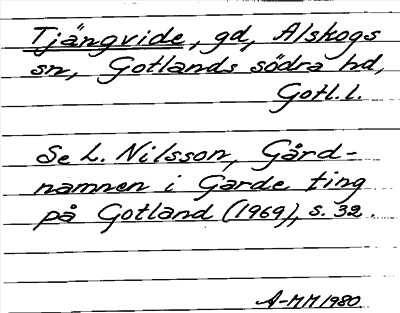 Tjängvide, gd, Alskogs
sn, Gotlands södra hd,
Gotl.l.
Se L. Nilsson, Gård-
namnen i Garde ting
på Gotland (1969), s. 32.
A-MM 1980